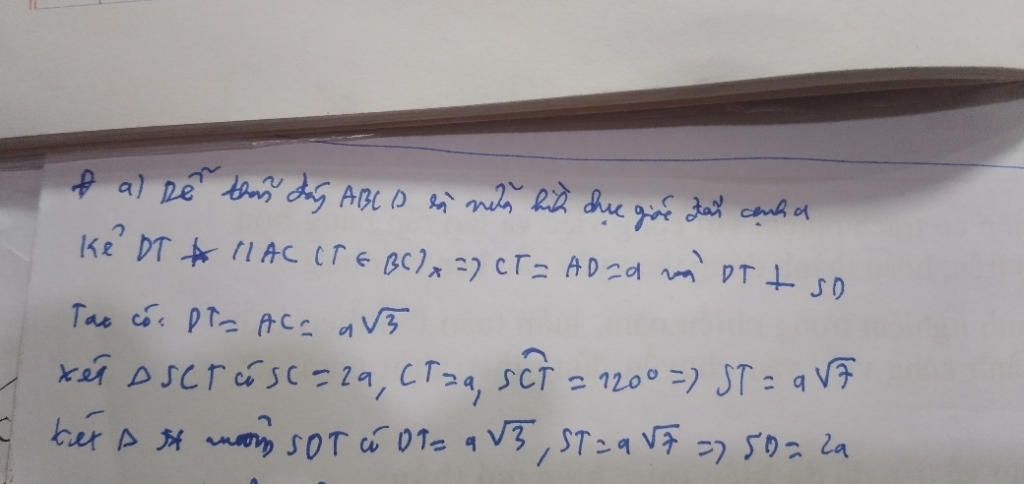 a) Dễ thấy đáy ABCD là nửa hình lục giác đều cạnh a
Kẻ DT // AC (T ∈ BC) => CT = AD = a và DT ⊥ SD
Ta có: DT = AC = a√3
Xét Δ SCT có SC = 2a, CT = a, SCT = 120° => ST = a√7
Xét Δ vuông SDT có DT = a√3, ST = a√7 => SD = 2a